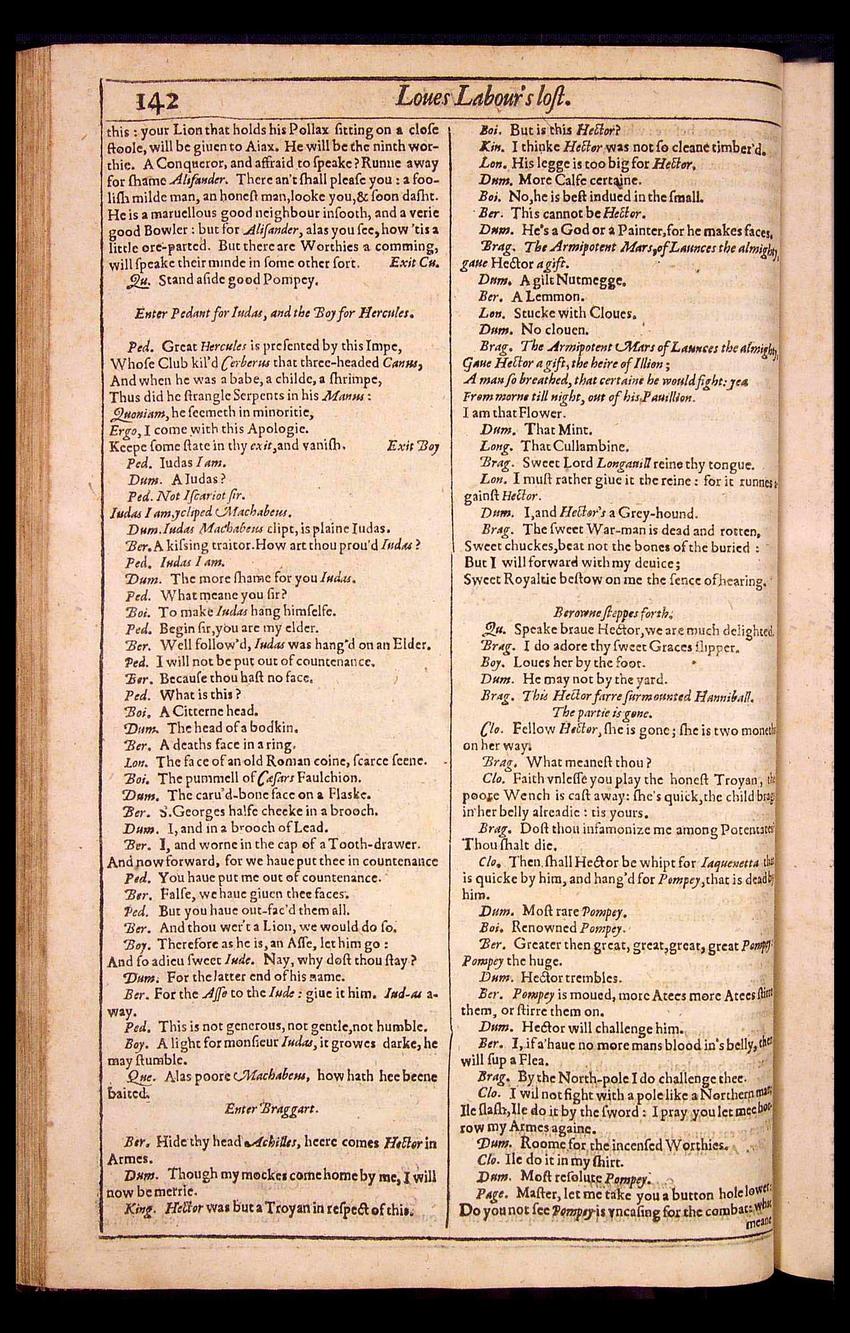 142
Loues Labour's lost.
this : your Lion that holds his Pollax sitting on a close
stoole, will be giuen to Aiax. He will be the ninth wor-
thie. A Conqueror, and affraid to speake? Runne away
for shame Alisander. There an't shall please you : a foo-
lish milde man, an honest man, looke you, & soon dasht.
He is a maruellous good neighbour insooth, and a verie
good Bowler : but for Alisander, alas you see, how 'tis a
little ore-parted. But there are Worthies a comming,
will speake their minde in some other sort. Exit Cu.
Qu. Stand aside good Pompey.
Enter Pedant for Iudas, and the Boy for Hercules.
Ped. Great Hercules is presented by this Impe,
Whose Club kil'd Cerberus that three-headed Canus,
And when he was a babe, a childe, a shrimpe,
Thus did he strangle Serpents in his Manus :
Quoniam, he seemeth in minoritie,
Ergo, I come with this Apologie.
Keepe some state in thy exit, and vanish. Exit Boy
Ped. Iudas I am.
Dum. A Iudas?
Ped. Not Iscariot sir.
Iudas I am, ycliped Machabeus.
Dum. Iudas Machabeus clipt, is plaine Iudas.
Ber. A kissing traitor. How art thou prou'd Iudas?
Ped. Iudas I am.
Dum. The more shame for you Iudas.
Ped. What meane you sir?
Boi. To make Iudas hang himselfe.
Ped. Begin sir, you are my elder.
Ber. Well follow'd, Iudas was hang'd on an Elder.
Ped. I will not be put out of countenance.
Ber. Because thou hast no face.
Ped. What is this?
Boi. A Citterne head.
Dum. The head of a bodkin.
Ber. A deaths face in a ring.
Lon. The face of an old Roman coine, scarce seene.
Boi. The pummell of Cæsars Faulchion.
Dum. The caru'd-bone face on a Flaske.
Ber. S. Georges halfe cheeke in a brooch.
Dum. I, and in a brooch of Lead.
Ber. I, and worne in the cap of a Tooth-drawer.
And now forward, for we haue put thee in countenance
Ped. You haue put me out of countenance.
Ber. False, we haue giuen thee faces.
Ped. But you haue out-fac'd them all.
Ber. And thou wer't a Lion, we would do so.
Boy. Therefore as he is, an Asse, let him go :
And so adieu sweet Iude. Nay, why dost thou stay?
Dum. For the latter end of his name.
Ber. For the Asse to the Iude : giue it him. Iud-as a-
way.
Ped. This is not generous, not gentle, not humble.
Boy. A light for monsieur Iudas, it growes darke, he
may stumble.
Que. Alas poore Machabeus, how hath hee beene
baited.
Enter Braggart.
Ber. Hide thy head Achilles, heere comes Hector in
Armes.
Dum. Though my mockes come home by me, I will
now be merrie.
King. Hector was but a Troyan in respect of this.
Boi. But is this Hector?
Kin. I thinke Hector was not so cleane timber'd.
Lon. His legge is too big for Hector.
Dum. More Calfe certaine.
Boi. No, he is best indued in the small.
Ber. This cannot be Hector.
Dum. He's a God or a Painter, for he makes faces.
Brag. The Armipotent Mars, of Launces the almighty,
gaue Hector a gift.
Dum. A gilt Nutmegge.
Ber. A Lemmon.
Lon. Stucke with Cloues.
Dum. No clouen.
Brag. The Armipotent Mars of Launces the almighty,
Gaue Hector a gift, the heire of Illion;
A man so breathed, that certaine he would fight: yea
From morne till night, out of his Pauillion.
I am that Flower.
Dum. That Mint.
Long. That Cullambine.
Brag. Sweet Lord Longauill reine thy tongue.
Lon. I must rather giue it the reine : for it runnes a-
gainst Hector.
Dum. I, and Hector's a Grey-hound.
Brag. The sweet War-man is dead and rotten,
Sweet chuckes, beat not the bones of the buried :
But I will forward with my deuice;
Sweet Royaltie bestow on me the sence of hearing.
Berowne steppes forth.
Qu. Speake braue Hector, we are much delighted.
Brag. I do adore thy sweet Graces slipper.
Boy. Loues her by the foot.
Dum. He may not by the yard.
Brag. This Hector farre surmounted Hanniball.
The partie is gone.
Clo. Fellow Hector, she is gone; she is two moneths
on her way.
Brag. What meanest thou?
Clo. Faith vnlesse you play the honest Troyan, the
poore Wench is cast away: she's quick, the child brags
in her belly alreadie : tis yours.
Brag. Dost thou infamonize me among Potentates?
Thou shalt die.
Clo. Then shall Hector be whipt for Iaquenetta that
is quicke by him, and hang'd for Pompey, that is dead by
him.
Dum. Most rare Pompey.
Boi. Renowned Pompey.
Ber. Greater then great, great, great, great Pompey:
Pompey the huge.
Dum. Hector trembles.
Ber. Pompey is moued, more Atees more Atees stirre
them, or stirre them on.
Dum. Hector will challenge him.
Ber. I, if a'haue no more mans blood in's belly, then
will sup a Flea.
Brag. By the North-pole I do challenge thee.
Clo. I wil not fight with a pole like a Northern man;
Ile slash, Ile do it by the sword : I pray you let mee bor-
row my Armes againe.
Dum. Roome for the incensed Worthies.
Clo. Ile do it in my shirt.
Dum. Most resolute Pompey.
Page. Master, let me take you a button hole lower:
Do you not see Pompey is vncasing for the combat: what
meane